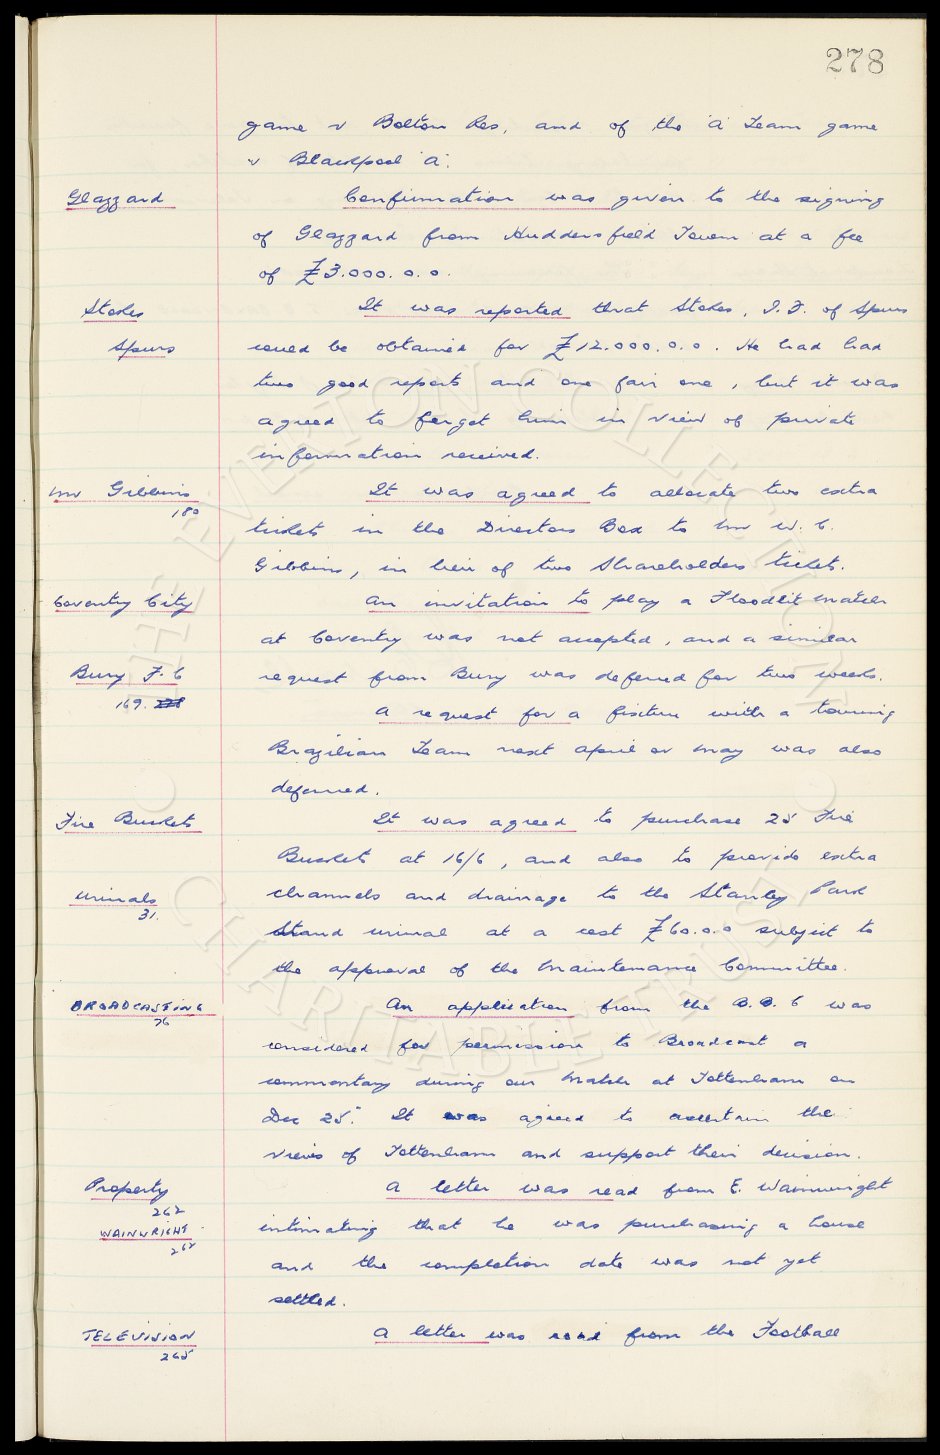 278
game v Bolton Res, and of the 'A' Team game
v Blackpool 'A'.
Glazzard Confirmation was given to the signing
of Glazzard from Huddersfield Town at a fee
of £3.000.0.0.
Stokes It was reported that Stokes, I.F. of Spurs
Spurs could be obtained for £12.000.0.0. He had had
two good reports and one fair one, but it was
agreed to forget him in view of private
information received.
Mr Gibbins It was agreed to allocate two extra
180
tickets in the Directors Box to Mr W. C.
Gibbins, in lieu of two Shareholders tickets.
Coventry City An invitation to play a Floodlit Match
at Coventry was not accepted, and a similar
Bury F.C request from Bury was deferred for two weeks.
169.
A request for a fixture with a touring
Brazilian Team next April or May was also
deferred.
Fire Buckets It was agreed to purchase 25 Fire
Buckets at 16/6, and also to provide extra
Urinals channels and drainage to the Stanley Park
31.
Stand urinal at a cost £60.0.0 subject to
the approval of the Maintenance Committee.
BROADCASTING An application from the B.B.C was
76
considered for permission to Broadcast a
commentary during our Match at Tottenham on
Dec 25. It was agreed to ascertain the
views of Tottenham and support their decision.
Property A letter was read from E. Wainwright
262
WAINWRIGHT intimating that he was purchasing a house
262
and the completion date was not yet
settled.
TELEVISION A letter was read from the Football
265
THE EVERTON COLLECTION
CHARITABLE TRUST